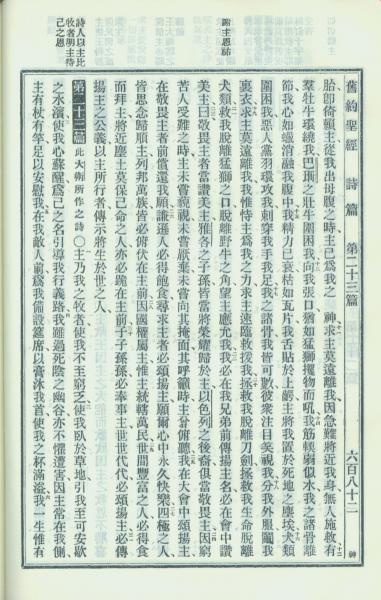 舊約聖經 詩篇 第二十三篇 六百八十二 神
胎卽倚賴主從我出母腹之時主已爲我之 神求主莫遠離我因急難將近我身無人施救有
羣牡牛環繞我巴珊之壯牛圍困我向我張口猶如猛獅攫物而吼我筋弱似水我之諸骨離
節我心如蠟消融我腹中我精力已衰枯如瓦片我舌貼於上齶主將我置於死地之塵埃犬類
圍困我惡人黨羽環攻我刺穿我手我足我之諸骨我皆可數彼衆注目笑視我分我外服鬮我
裏衣求主莫遠離我我惟恃主爲我之力求主速臨救援我拯救我脫離刀劍拯救我生命脫離
犬類救我脫離猛獅之口脫離野牛之角望主應允我我必在我兄弟前傳揚主名必在會中讚
謝主恩祐
美主曰敬畏主者當讚美主雅各之子孫皆當將榮耀歸於主以色列之後裔俱當敬畏主因窮
苦人受難之時主未嘗藐視未嘗厭棄未嘗向其掩面其呼籲時主曾俯聽我在大會中頌揚主
在敬畏主者前償還我願謙遜人必得飽食尋求主者必頌揚主願爾心中永久快樂四極之人
皆思念歸順主列邦萬族皆必俯伏在主前因國權屬主惟主統轄萬民世間豐富之人必得食
而拜主將近塵土莫保己命之人亦必跪在主前子子孫孫必奉事主世世代代必頌揚主必傳
揚主之公義以主所行者傳示將生於世之人
詩人以主比
牧者明主待
己之恩
第二十三篇 此大衛所作之詩○主乃我之牧者使我不至窮乏使我臥於草地引我至可安歇
之水濱使我心蘇醒爲己之名引導我行義路我雖過死陰之幽谷亦不懼遭害因主常在我側
主有杖有竿足以安慰我在我敵人前爲我備設筵席以膏沐我首使我之杯滿溢我一生惟有